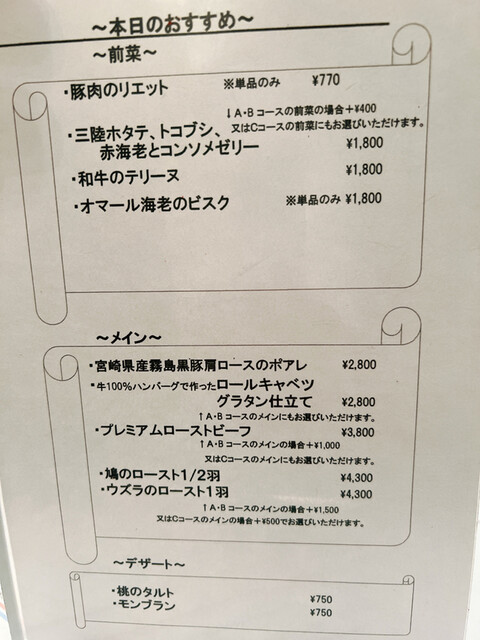 ～本日のおすすめ～
～前菜～
・豚肉のリエット ※単品のみ ¥770
↓A・Bコースの前菜の場合＋¥400
又はCコースの前菜にもお選びいただけます。
・三陸ホタテ、トコブシ、
赤海老とコンソメゼリー ¥1,800
・和牛のテリーヌ ¥1,800
・オマール海老のビスク ※単品のみ ¥1,800
～メイン～
・宮崎県産霧島黒豚肩ロースのポアレ ¥2,800
・牛100%ハンバーグで作ったロールキャベツ
グラタン仕立て ¥2,800
↑A・Bコースのメインにもお選びいただけます。
・プレミアムローストビーフ ¥3,800
↑A・Bコースのメインの場合＋¥1,000
又はCコースのメインにもお選びいただけます。
・鳩のロースト1/2羽 ¥4,300
・ウズラのロースト1羽 ¥4,300
↑A・Bコースのメインの場合＋¥1,500
又はCコースのメインの場合＋¥500でお選びいただけます。
～デザート～
・桃のタルト ¥750
・モンブラン ¥750